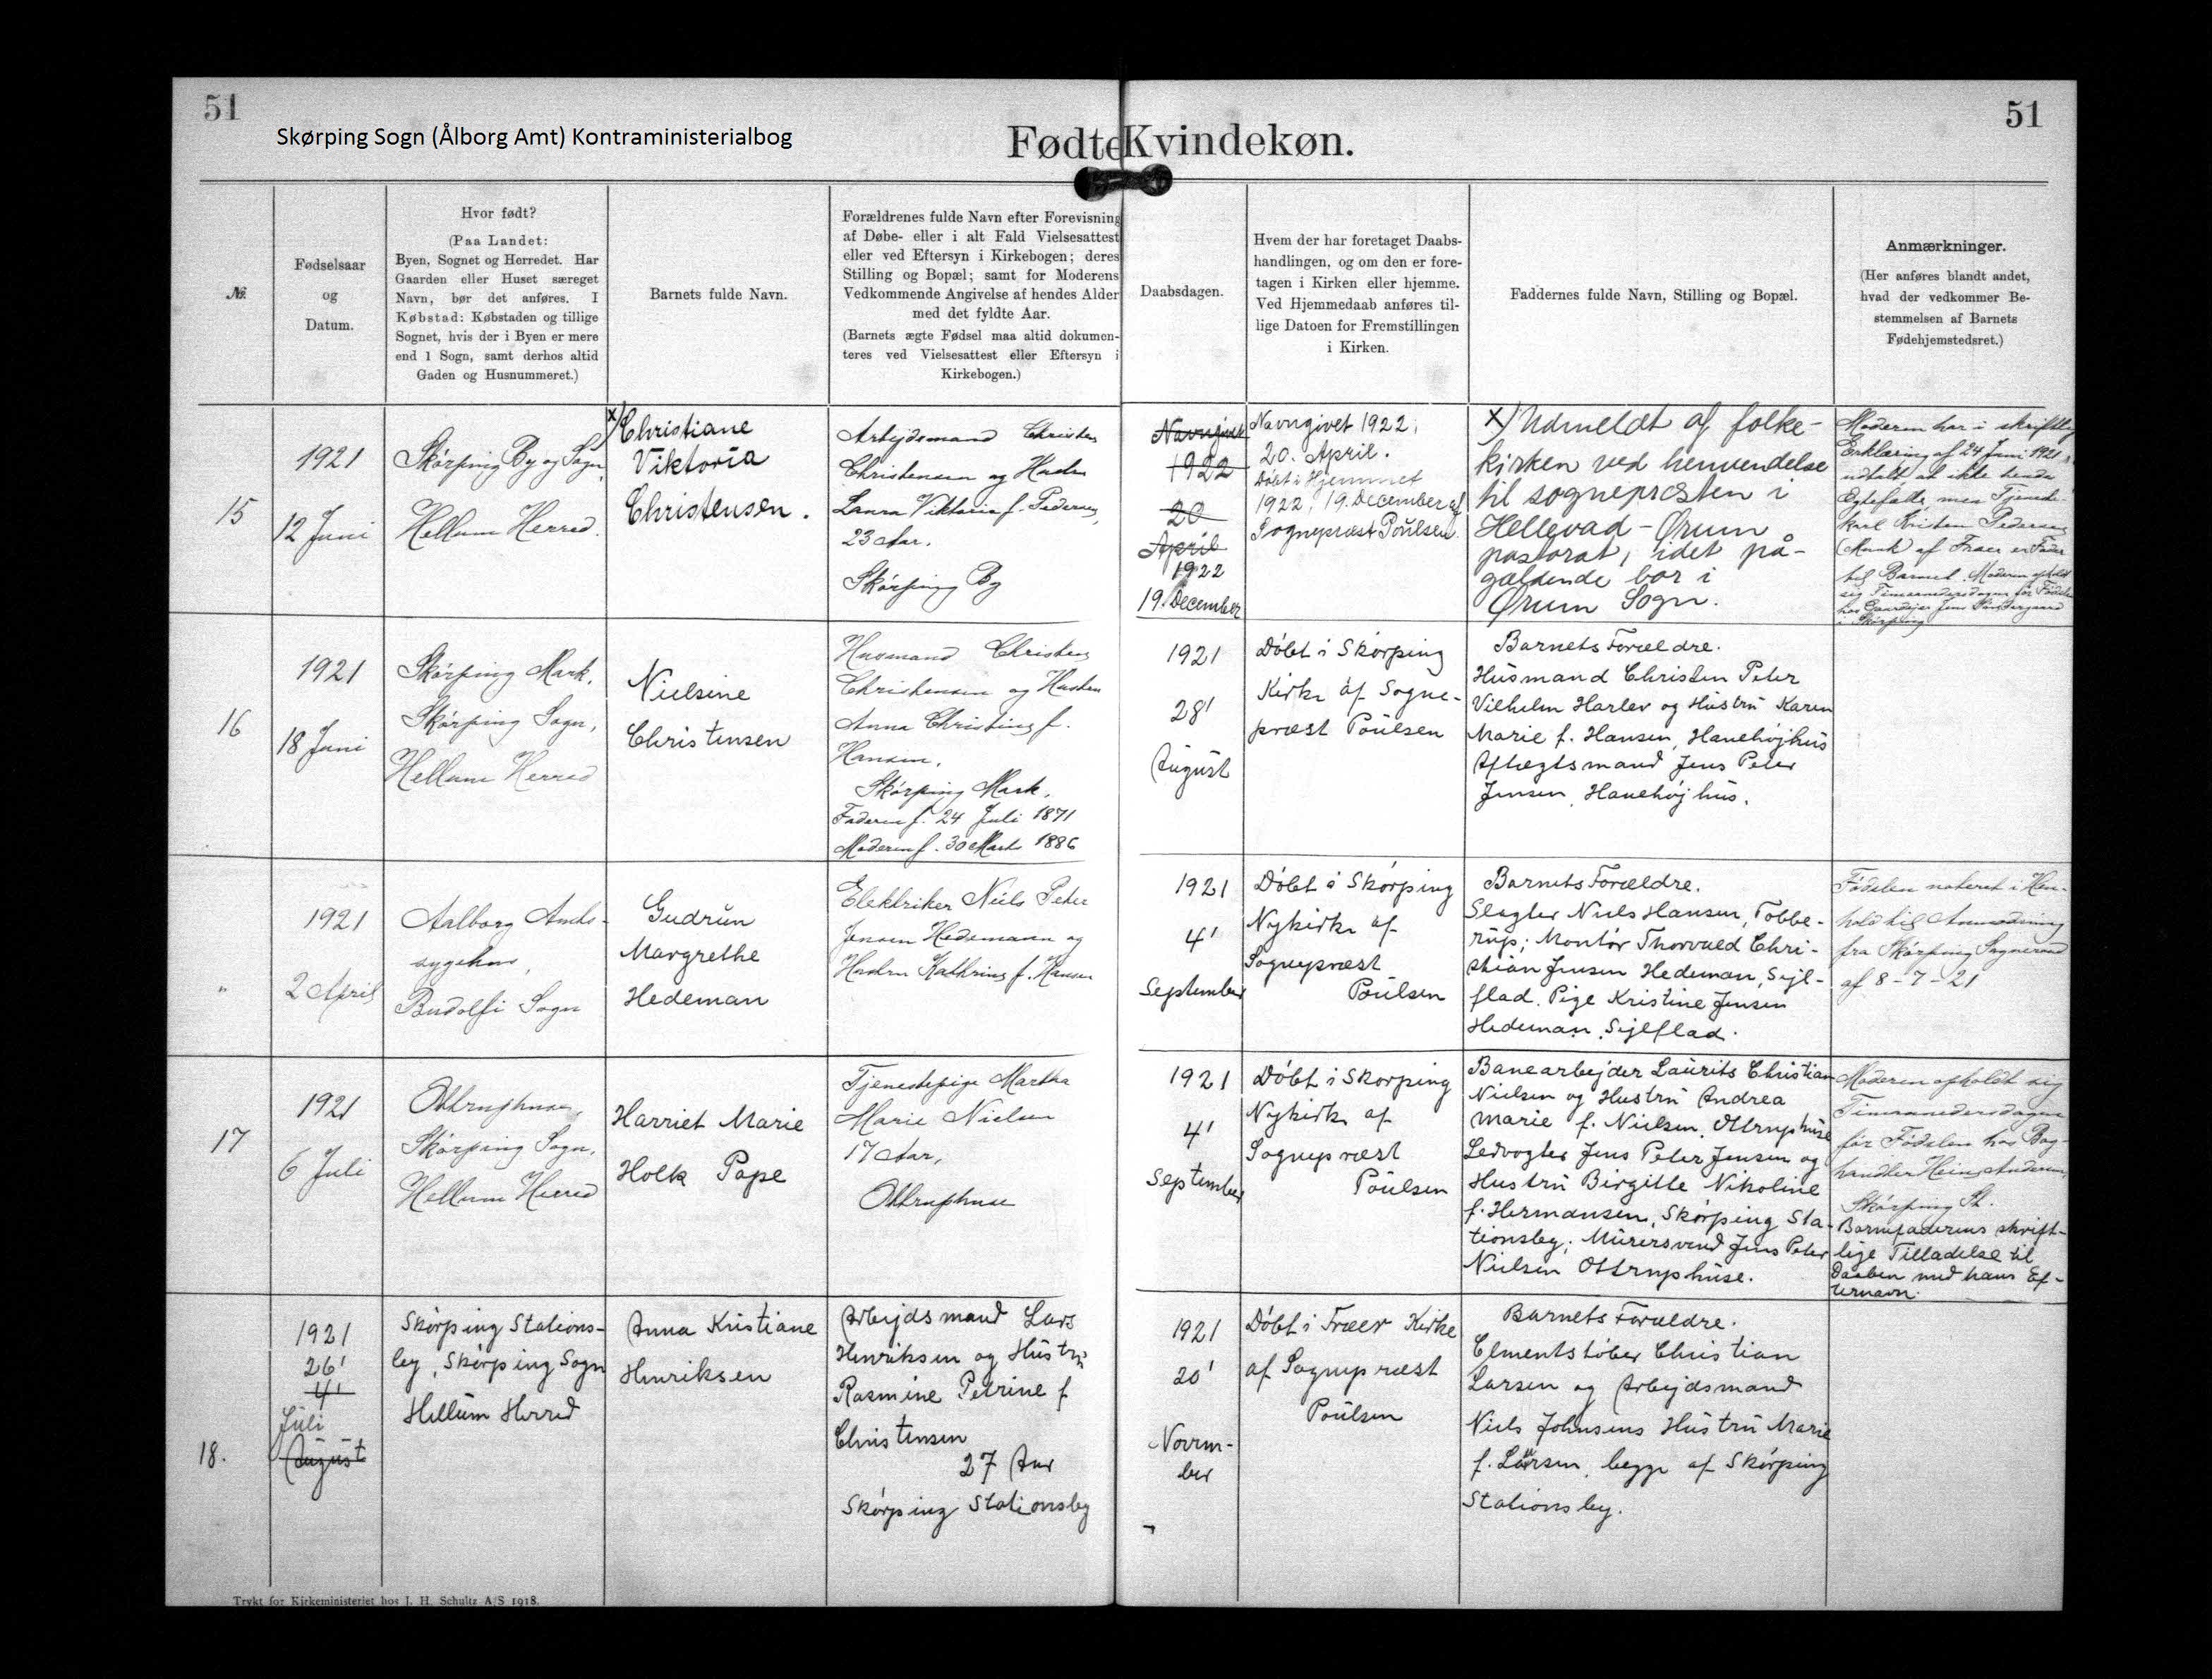 51
51
Skørping Sogn (Ålborg Amt) Kontraministerialbog
Fødte Kvindekøn.
№.
Fødselsaar
og
Datum.
Hvor født?
(Paa Landet:
Byen, Sognet og Herredet. Har
Gaarden eller Huset særeget
Navn, bør det anføres. I
Købstad: Købstaden og tillige
Sognet, hvis der i Byen er mere
end 1 Sogn, samt derhos altid
Gaden og Husnummeret.)
Barnets fulde Navn.
Forældrenes fulde Navn efter Forevisning
af Døbe- eller i alt Fald Vielsesattest
eller ved Eftersyn i Kirkebogen; deres
Stilling og Bopæl; samt for Moderens
Vedkommende Angivelse af hendes Alder
med det fyldte Aar.
(Barnets ægte Fødsel maa altid dokumen-
teres ved Vielsesattest eller Eftersyn i
Kirkebogen.)
Daabsdagen.
Hvem der har foretaget Daabs-
handlingen, og om den er fore-
tagen i Kirken eller hjemme.
Ved Hjemmedaab anføres til-
lige Datoen for Fremstillingen
i Kirken.
Faddernes fulde Navn, Stilling og Bopæl.
Anmærkninger.
(Her anføres blandt andet,
hvad der vedkommer Be-
stemmelsen af Barnets
Fødehjemstedsret.)
15
1921
12 Juni
Skørping By og Sogn,
Hellum Herred.
x) Christiane
Viktoria
Christensen.
Arbejdsmand Christen
Christensen og Hustru
Laura Viktoria f. Pedersen,
23 Aar.
Skørping By
Navngivet
1922
20
April
1922
19. December
Navngivet 1922,
20. April.
Døbt i Hjemmet
1922, 19. December af
Sognepræst Poulsen.
x) Udmeldt af folke-
kirken ved henvendelse
til sognepræsten i
Hellevad-Ørum
pastorat, idet på-
gældende bor i
Ørum Sogn.
Moderen har i skriftlig
Erklæring af 24 Juni 1921
udtalt at ikke hendes
Egtefælle, men Tjeneste-
karl Kristen Pedersen
(Munk) af Fraer er Fader
til Barnet. Moderen opholdt
sig Timaanedersdagen før Fødslen
hos Gaardejer Jens Søndergaard
i Skørping
16
1921
18 Juni
Skørping Mark,
Skørping Sogn,
Hellum Herred
Nielsine
Christensen
Husmand Christen
Christensen og Hustru
Anna Christine f.
Hansen,
Skørping Mark.
Faderen f. 24 Juli 1871
Moderen f. 30 Marts 1886
1921
28'
August
Døbt i Skørping
Kirke af Sogne-
præst Poulsen
Barnets Forældre.
Husmand Christen Peter
Vilhelm Harlev og Hustru Karen
Marie f. Hansen, Hanehøjhus
Aftægtsmand Jens Peter
Jensen, Hanehøjhus.
"
1921
2 April
Aalborg Amts-
sygehus,
Budolfi Sogn
Gudrun
Margrethe
Hedeman
Elektriker Niels Peter
Jensen Hedemann og
Hustru Kathrine f. Hansen
1921
4'
September
Døbt i Skørping
Nykirke af
Sognepræst
Poulsen
Barnets Forældre.
Slagter Niels Hansen, Tobbe-
rup; Montør Thorvald Chri-
stian Jensen Hedeman, Sejl-
flad. Pige Kristine Jensen
Hedeman, Sejlflad.
Fødslen noteret i Hen-
hold til Anmodning
fra Skørping Sogneraad
af 8-7-21
17
1921
6 Juli
Ottruphuse,
Skørping Sogn,
Hellum Herred
Harriet Marie
Holk Pape
Tjenestepige Martha
Marie Nielsen
17 Aar,
Ottruphuse
1921
4'
September
Døbt i Skørping
Nykirke af
Sognepræst
Poulsen
Banearbejder Laurits Christian
Nielsen og Hustru Andrea
Marie f. Nielsen, Ottruphuse
Ledvogter Jens Peter Jensen og
Hustru Birgitte Nikoline
f. Hermansen, Skørping Sta-
tionsby; Murersvend Jens Peter
Nielsen Ottruphuse.
Moderen opholdt sig
Timaanedersdagen
før Fødslen hos Bog-
handler Hein Andersen,
Skørping St.
Barnefaderens skrift-
lige Tilladelse til
Daaben med hans Ef-
ternavn.
18.
1921
26'
4'
Juli
August
Skørping Stations-
by, Skørping Sogn
Hellum Herred
Anna Kristiane
Henriksen
Arbejdsmand Lars
Henriksen og Hustru
Rasmine Petrine f
Christensen
27 Aar
Skørping Stationsby
1921
20'
Novem-
ber
Døbt i Fræer Kirke
af Sognepræst
Poulsen
Barnets Forældre.
Cementstøber Christian
Larsen og Arbejdsmand
Niels Johnsens Hustru Marie
f. Larsen, begge af Skørping
Stationsby.
Trykt for Kirkeministeriet hos J. H. Schultz A/S 1918.